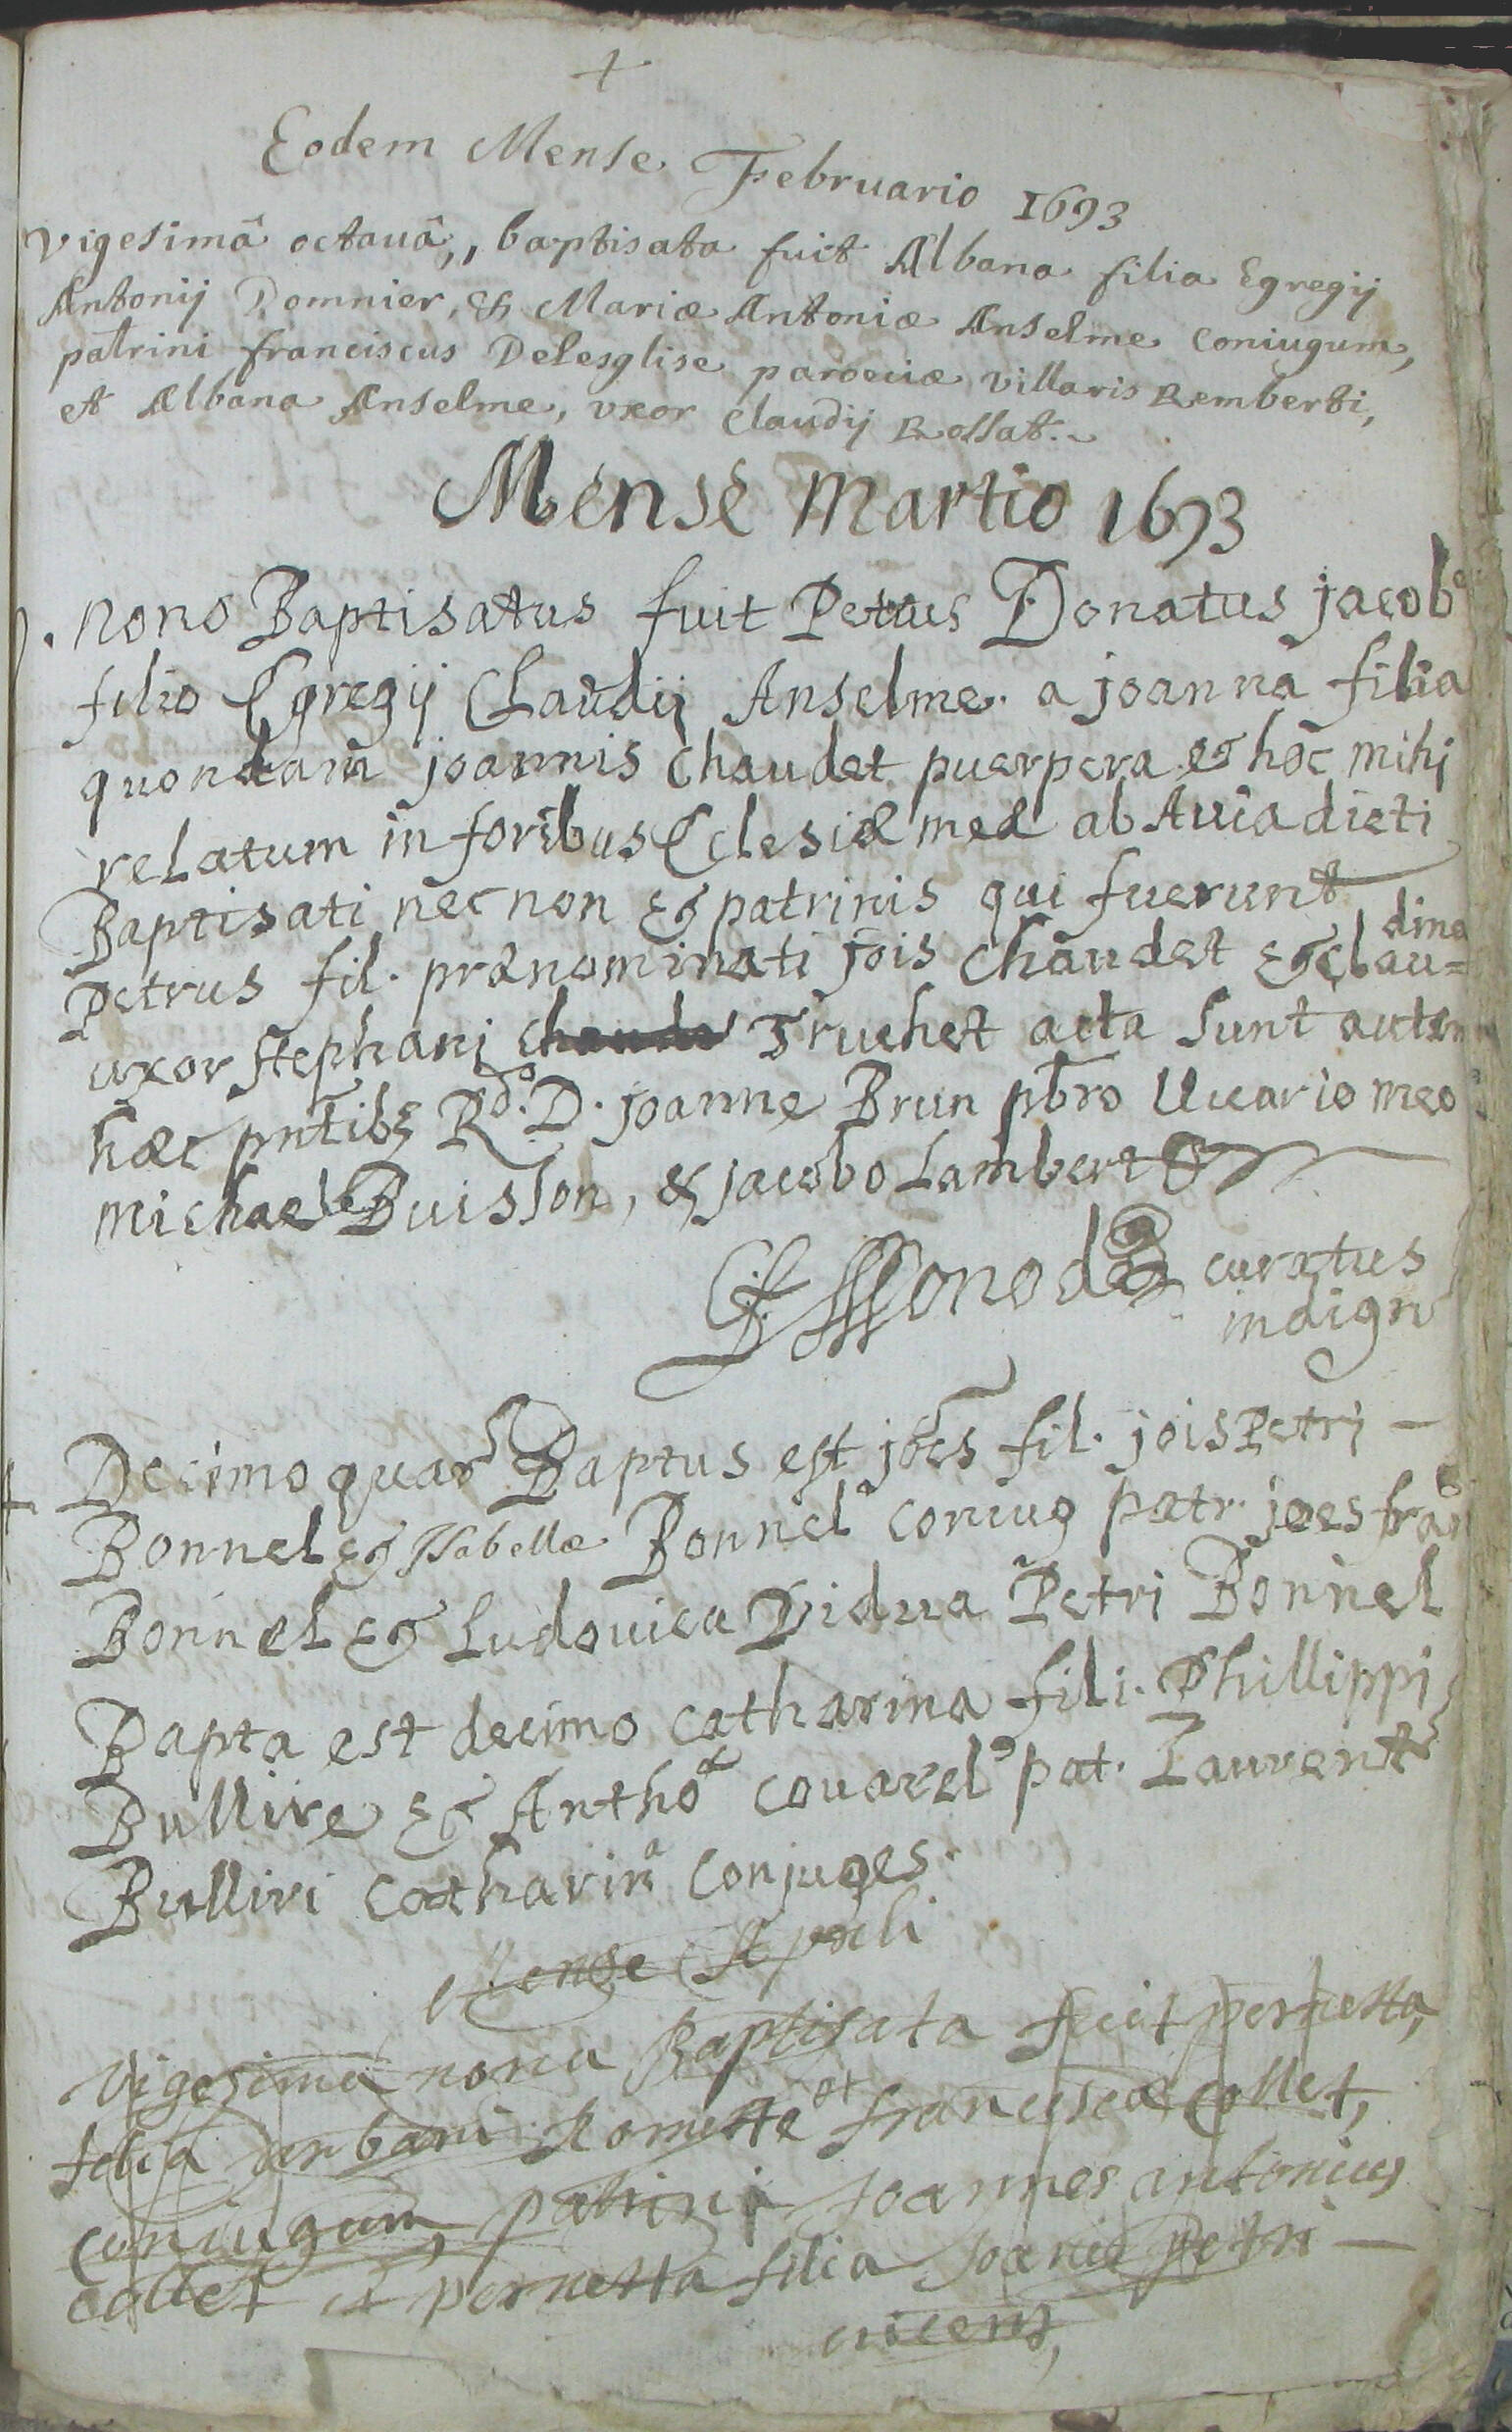 +
Eodem Mense Februario 1693
Vigesimâ octauâ,, baptisata fuit Albana filia Egregij
Antonij Domnier, & Mariæ Antoniæ Anselme coniugum,
patrini franciscus Delesglise paroeciæ villaris Remberti,
et Albana Anselme, vxor Claudij Rossat.
Mense Martio 1693
nono Baptisatus fuit Petrus Donatus jacob
filio Egregij Claudij Anselme a joanna filia
quondam joannis Chaudet puerpera & hoc mihi
relatum in foribus Eclesiæ meæ ab Auia dicti
Baptisati nec non & patrinis qui fuerunt
Petrus fil. prænominati jois Chaudet & clau=dina
uxor stephani Truchet acta sunt autem
hæc pntibs Rdo. D. joanne Brun pbro Uicario meo
michaele Buisson, & jacobo Lambert
curatus
indign
Decimo quar Baptus est joes fil. jois Petri —
Bonnel & Isabellæ Bonnel coniug patr. joes fran
Bonnel & Ludouica Vidua Petri Bonnel
Bapta est decimo catharina fili. Phillippi
Bullire & Antho couarel pat. Laurent
Bulliri catharina conjuges.
Mense Aprili
Vigesima nona Baptisata fuit pernetta,
filia urbani Romette et franciscæ Collet,
coniugum, patrini Joannes antonius
collet et pernetta filia Joanis Petri —